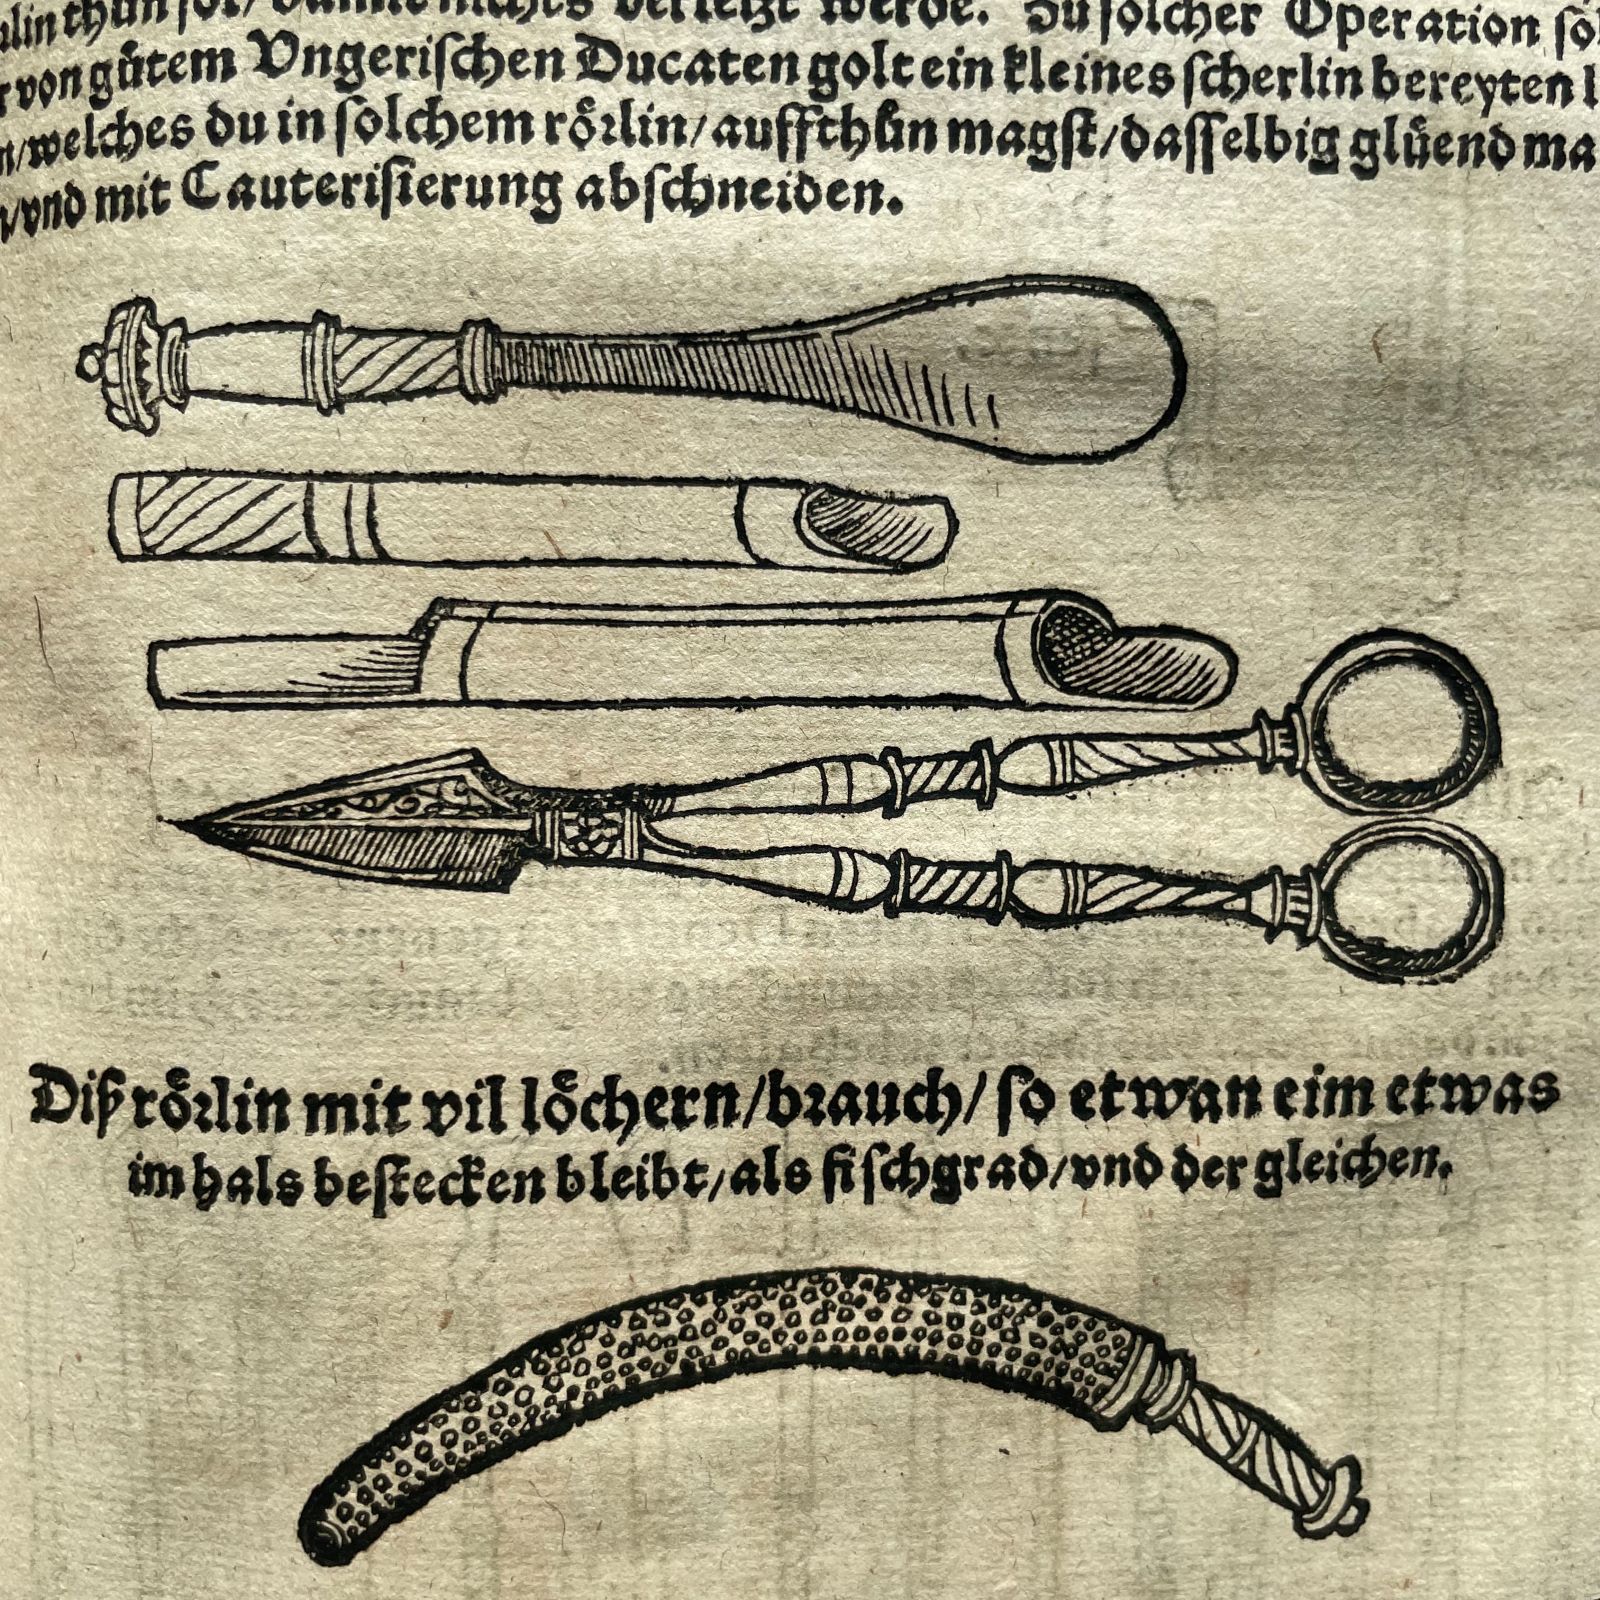 thůn sol/ damit nichts verletzt werde. Zu solcher Operation
von gůtem Vngerischen Ducaten golt ein kleines scherlin bereyten
welches du in solchem rőrlin/ auffthůn magst/ dasselbig glüend
vnd mit Cauterisierung abschneiden.
Diß rőrlin mit vil lőchern/ brauch/ so etwan eim etwas
im hals bestecken bleibt/ als fischgrad/ vnd der gleichen.